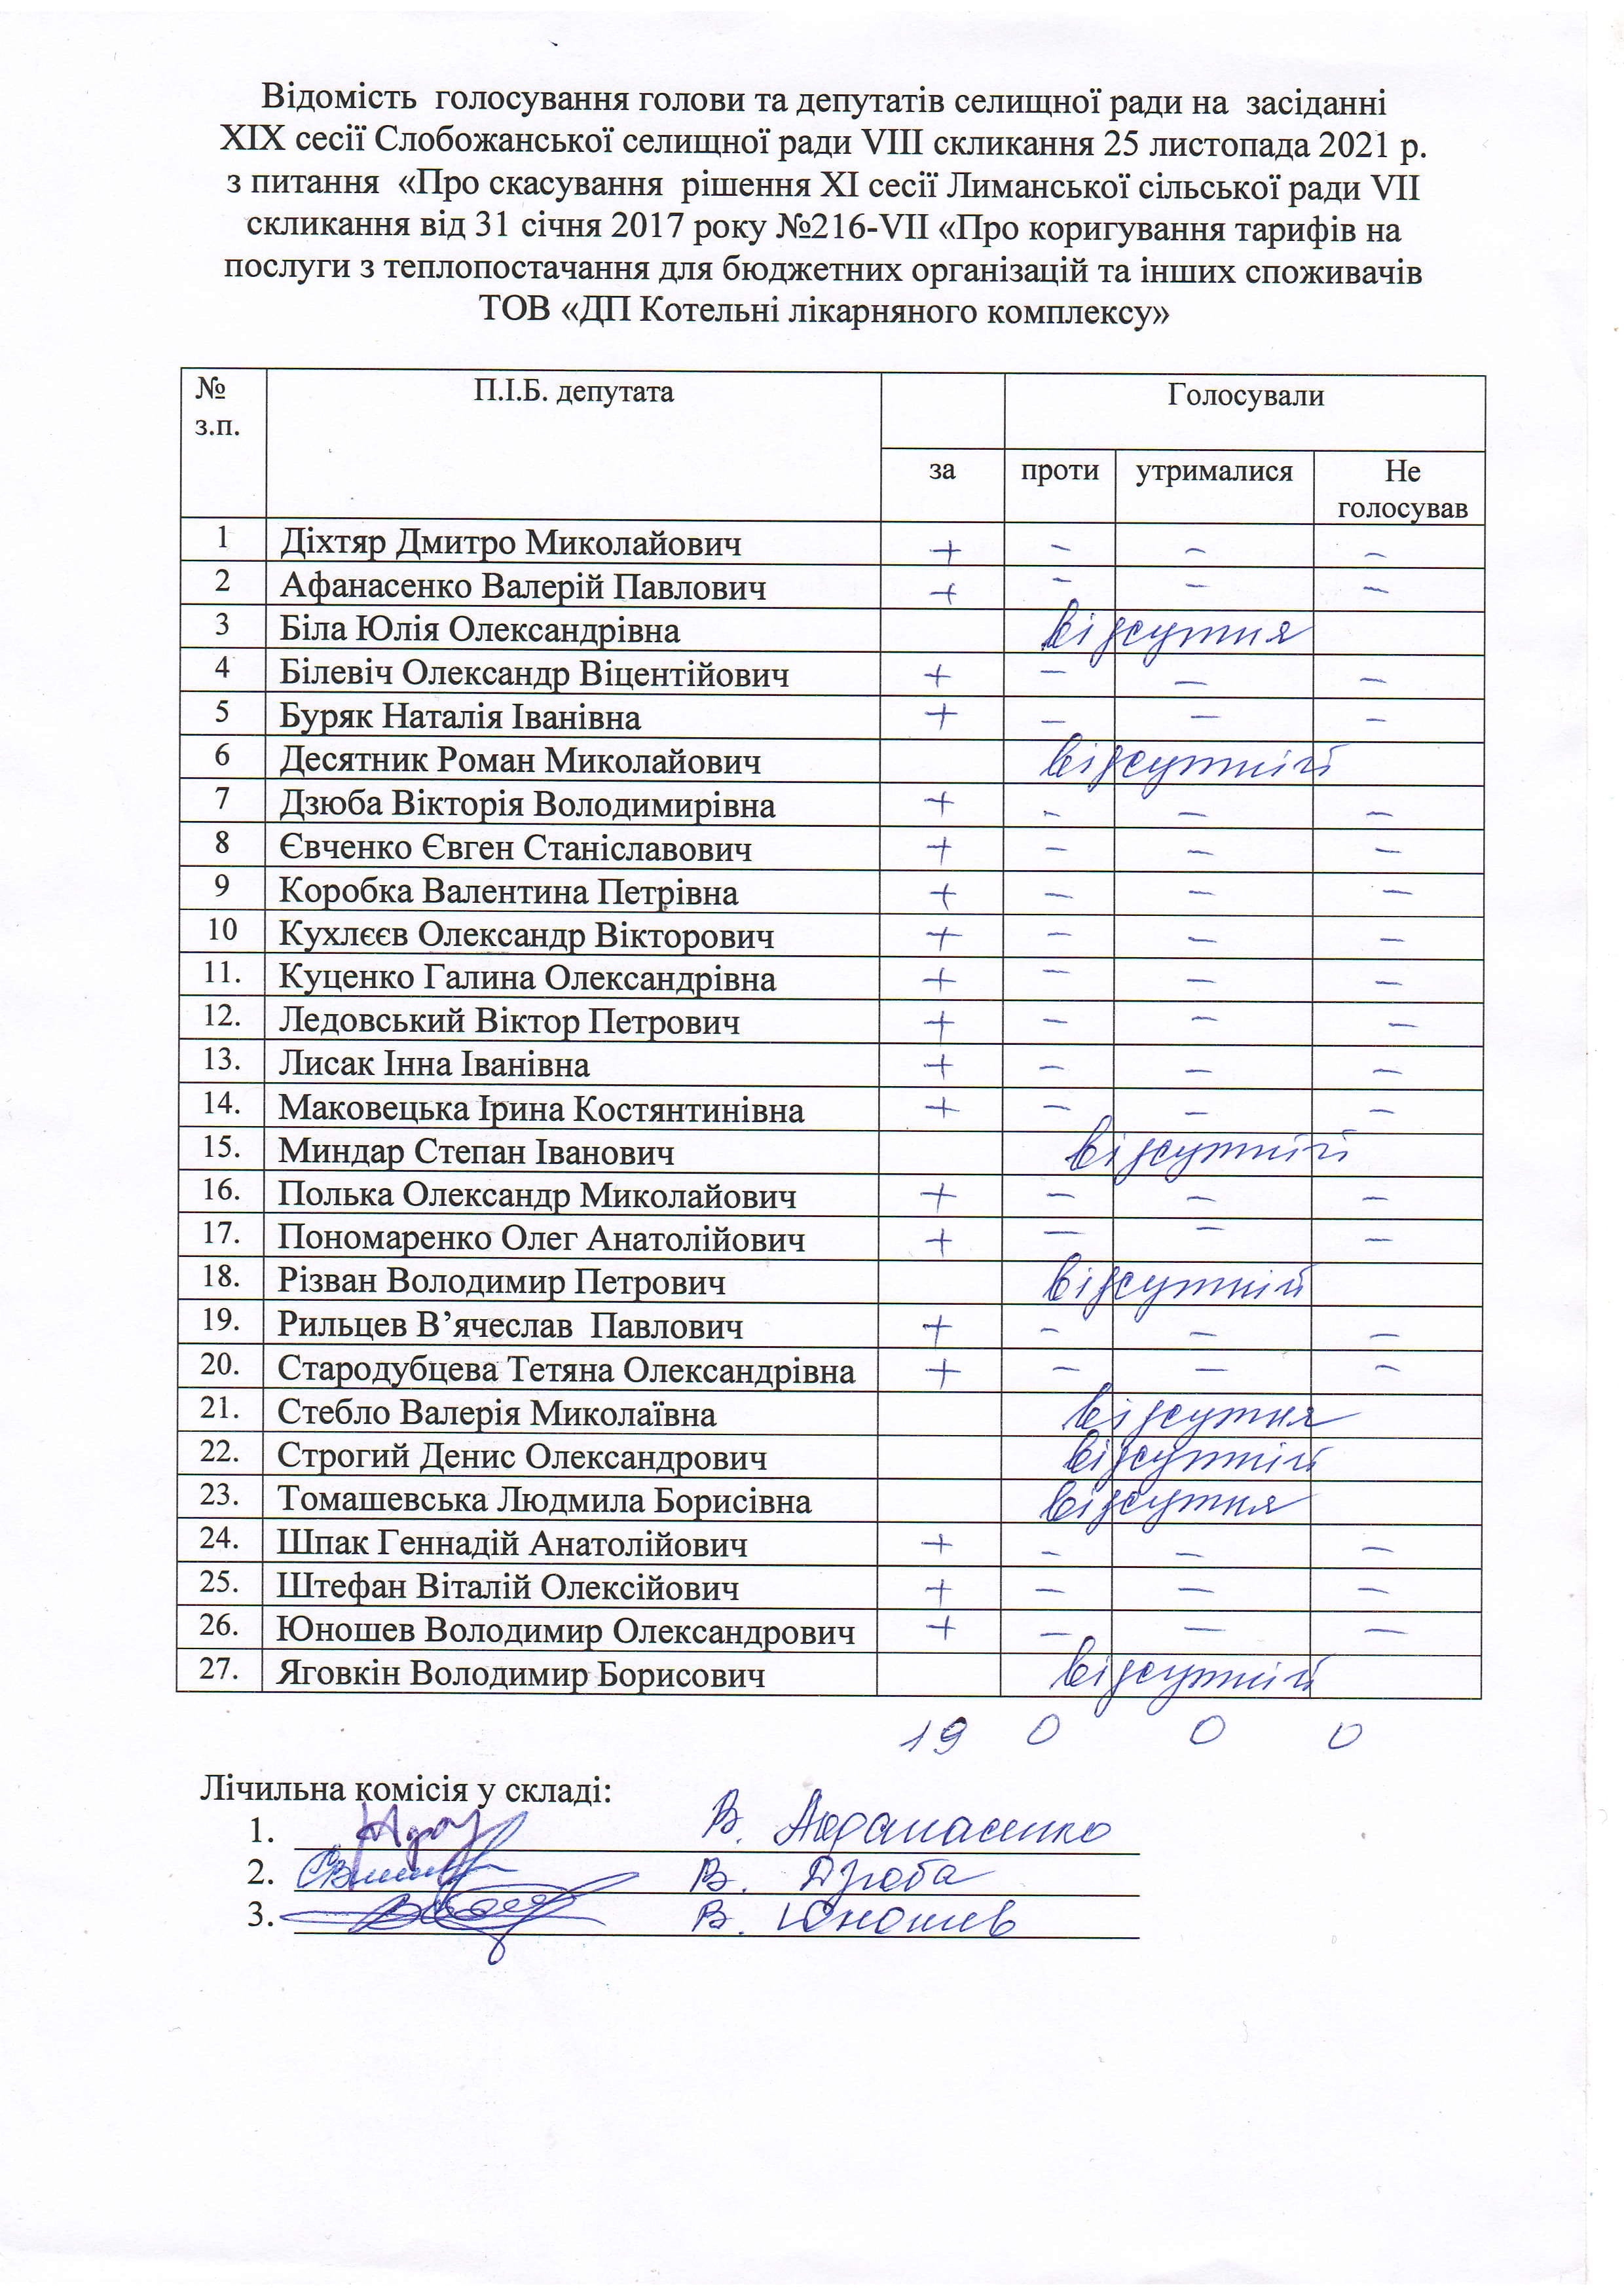 Відомість голосування голови та депутатів селищної ради на засіданні
XIX сесії Слобожанської селищної ради VIII скликання 25 листопада 2021 р.
з питання «Про скасування рішення XI сесії Лиманської сільської ради VII
скликання від 31 січня 2017 року №216-VII «Про коригування тарифів на
послуги з теплопостачання для бюджетних організацій та інших споживачів
ТОВ «ДП Котельні лікарняного комплексу»
№ з.п. П.І.Б. депутата Голосували
за проти утрималися Не голосував
1 Діхтяр Дмитро Миколайович + - - -
2 Афанасенко Валерій Павлович + - - -
3 Біла Юлія Олександрівна відсутня
4 Білевіч Олександр Віцентійович + - - -
5 Буряк Наталія Іванівна + - - -
6 Десятник Роман Миколайович відсутній
7 Дзюба Вікторія Володимирівна + - - -
8 Євченко Євген Станіславович + - - -
9 Коробка Валентина Петрівна + - - -
10 Кухлєєв Олександр Вікторович + - - -
11. Куценко Галина Олександрівна + - - -
12. Ледовський Віктор Петрович + - - -
13. Лисак Інна Іванівна + - - -
14. Маковецька Ірина Костянтинівна + - - -
15. Миндар Степан Іванович відсутній
16. Полька Олександр Миколайович + - - -
17. Пономаренко Олег Анатолійович + - - -
18. Різван Володимир Петрович відсутній
19. Рильцев В’ячеслав Павлович + - - -
20. Стародубцева Тетяна Олександрівна + - - -
21. Стебло Валерія Миколаївна відсутня
22. Строгий Денис Олександрович відсутній
23. Томашевська Людмила Борисівна відсутня
24. Шпак Геннадій Анатолійович + - - -
25. Штефан Віталій Олексійович + - - -
26. Юношев Володимир Олександрович + - - -
27. Яговкін Володимир Борисович відсутній
19 0 0 0
Лічильна комісія у складі:
1. В. Афанасенко
2. В. Дзюба
3. В. Юношев